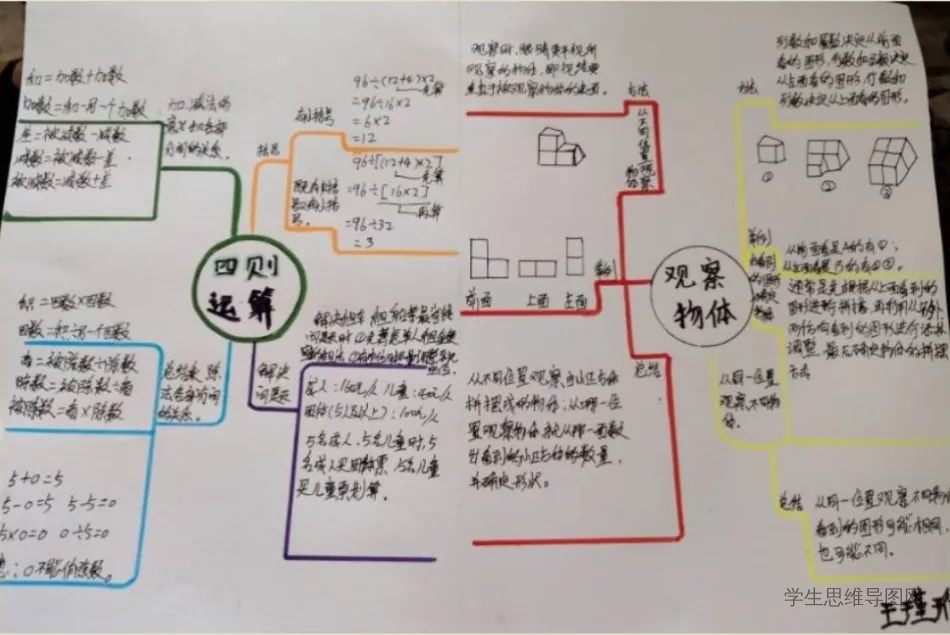 和=加数+加数
加数=和-另一个加数
差=被减数-减数
减数=被减数-差
被减数=减数+差
加、减法的
意义和各部
分间的关系
四则
运算
积=因数×因数
因数=积÷另一个因数
商=被除数÷除数
除数=被除数÷商
被除数=商×除数
5+0=5
5-0=5 5-5=0
5×0=0 0÷5=0
:0不能作除数。
括号
有小括号
96÷(12+4)×2
先算
=96÷16×2
=6×2
=12
既有中括
号又有小括
号。
96÷[(12+4)×2]
先算
=96÷[16×2]
再算
=96÷32
=3
解决
问题
成人:160元/人 儿童:40元/人
团体(5人以上):100元/人
5名成人,5名儿童时,5
名成人买团体票,5名儿童
买儿童票划算。
观察时,眼睛要平视所
观察的物体,即视线要
垂直于被观察物体的表面。
方法
从不同位置观察
举例
前面 上面 左面
总结
从不同位置观察由小正方体
拼摆成的物体:从哪一位
置观察物体,就从那一面数
出看到的小正方体的数量,
并确定形状。
观察
物体
列数和层数决定从前面
看的图形,行数和层数决定
从左面看的图形,行数和
列数决定从上面看的图形。
方法
① ② ③
举例
从同一位置
观察不同物
体。
总结
从同一位置观察不同物体
看到的图形可能相同,
也可能不同。
学生思维导图网